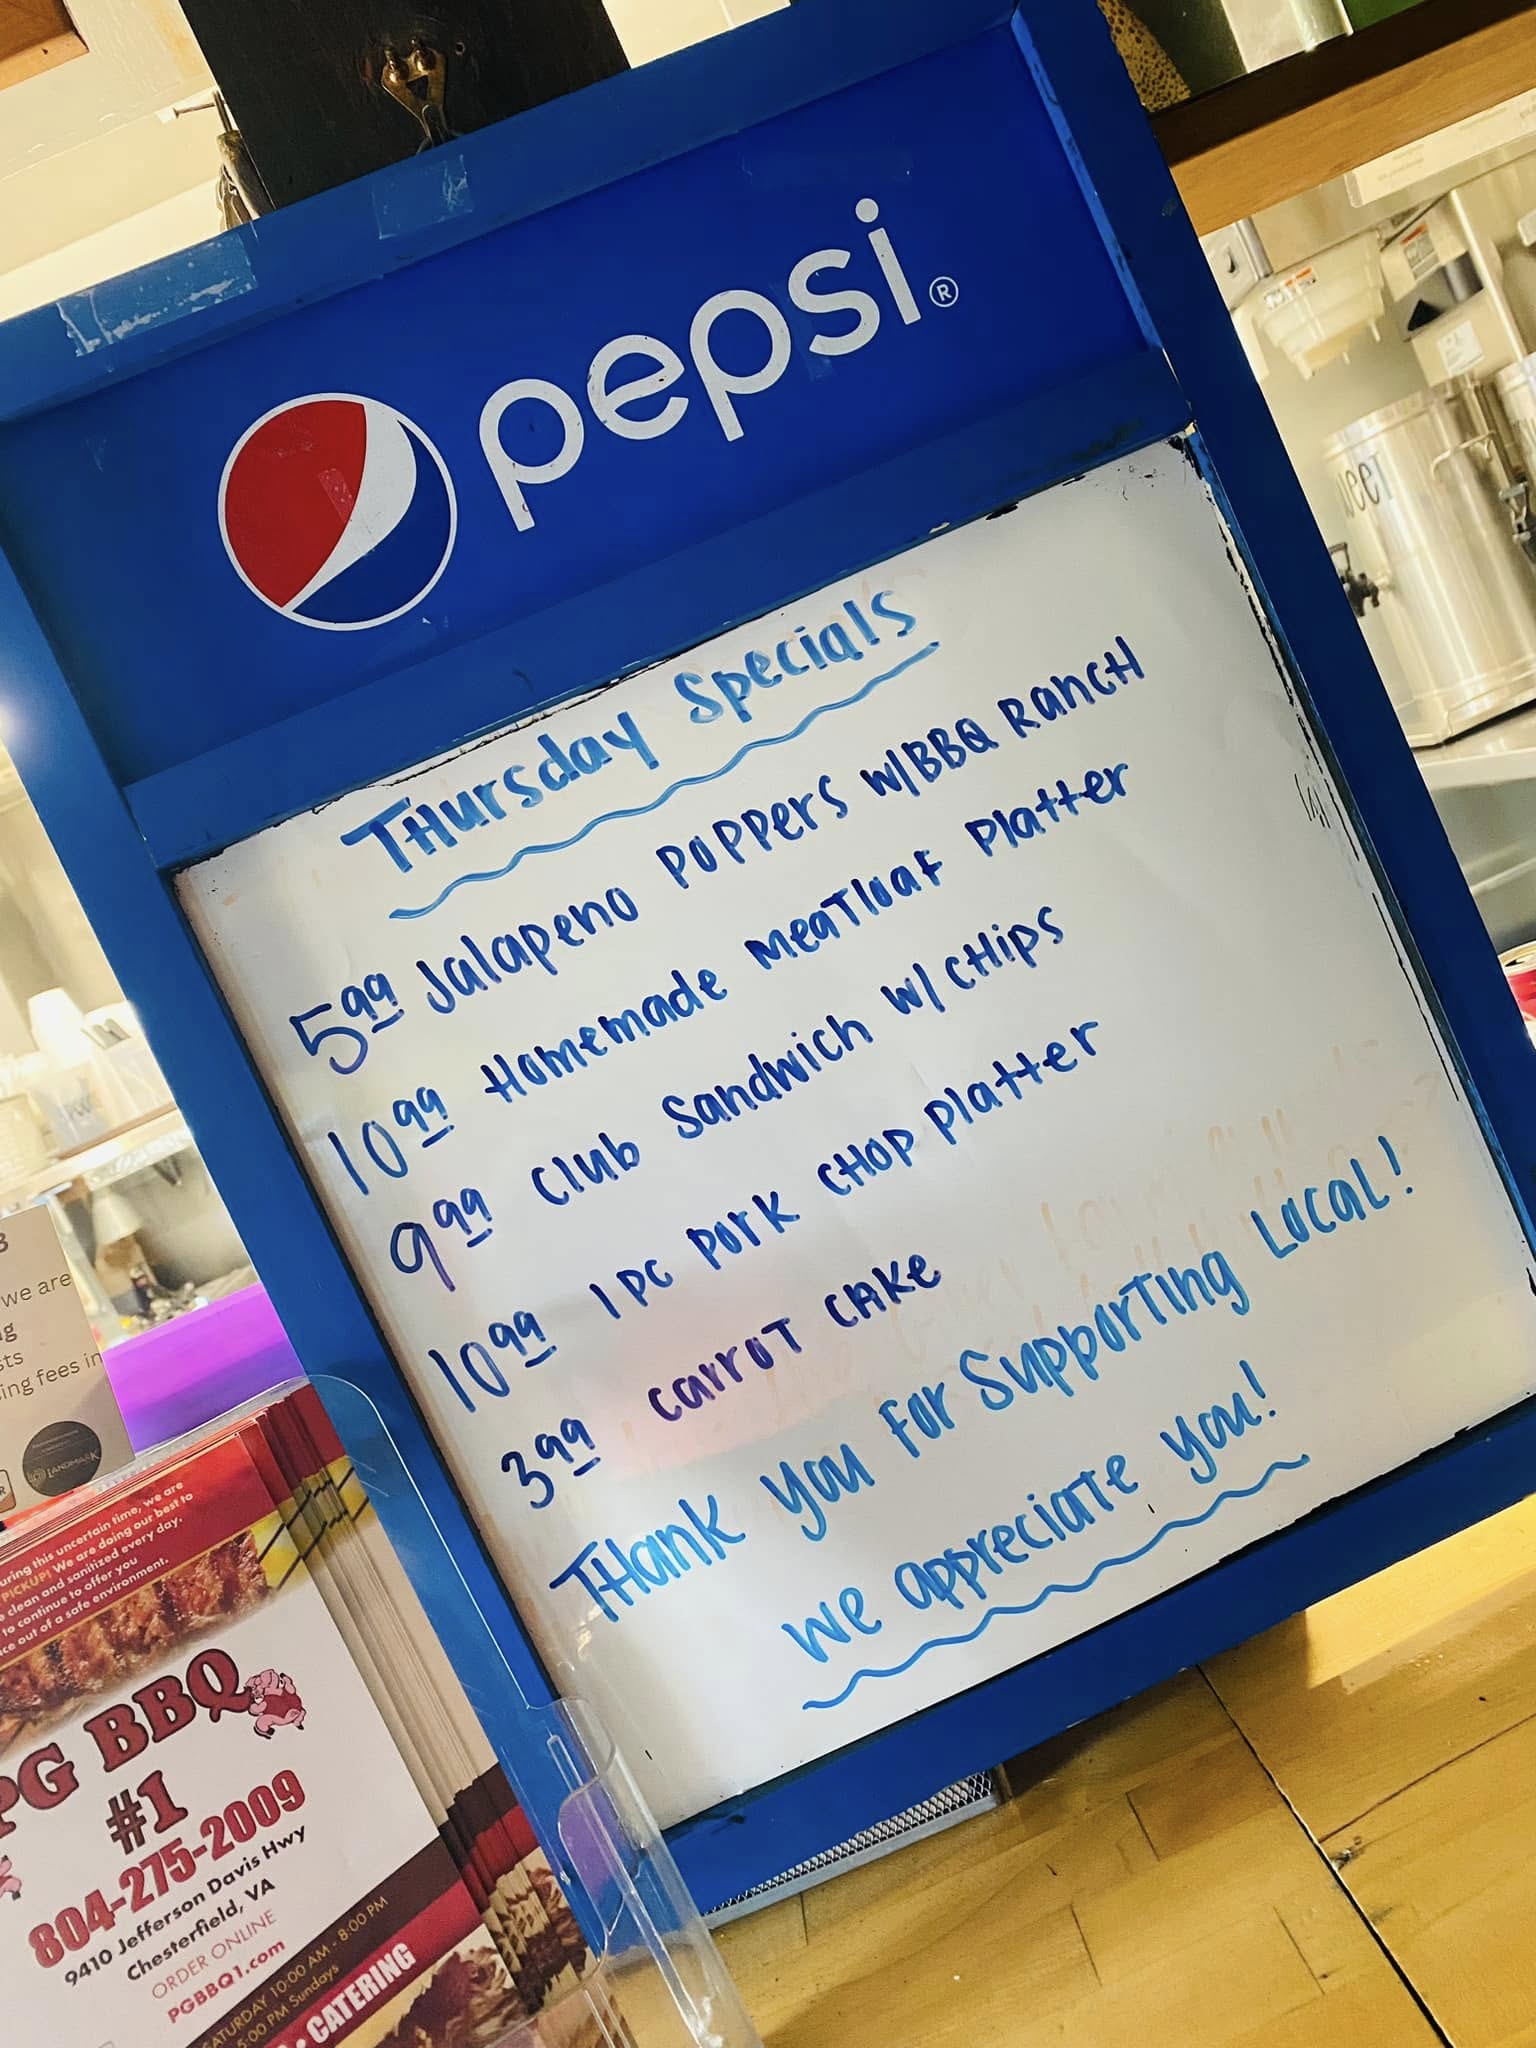 pepsi®
Thursday Specials
5.99 Jalapeno Poppers w/BBQ Ranch
10.99 Homemade Meatloaf Platter
9.99 Club Sandwich w/ Chips
10.99 1 PC Pork Chop Platter
3.99 Carrot Cake
Thank You For Supporting Local!
We Appreciate You!
we are
ing fees in
LANDMARK
uring this uncertain time, we are
PICKUP! We are doing our best to
clean and sanitized every day.
to continue to offer you
out of a safe environment.
PG BBQ
#1
804-275-2009
9410 Jefferson Davis Hwy
Chesterfield, VA
ORDER ONLINE
PGBBQ1.com
SATURDAY 10:00 AM - 8:00 PM
5:00 PM Sundays
• CATERING